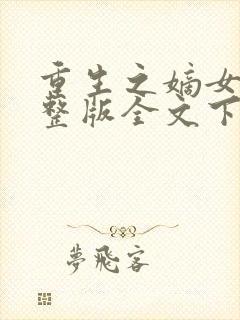 重生之嫡女
整版全文下
梦飛客